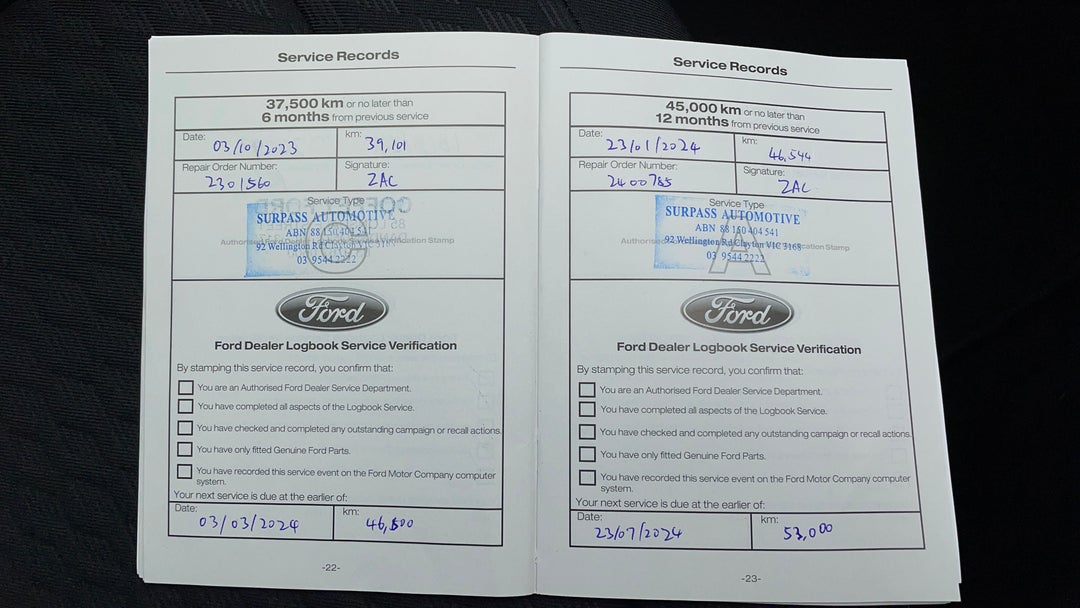 Service Records
37,500 km or no later than
6 months from previous service
Date: 03/10/2023
km: 39,101
Repair Order Number: 2301560
Signature: ZAC
Service Type
SURPASS AUTOMOTIVE
ABN 88 150 404 541
Authorised Ford Dealer Logbook Service Verification Stamp
92 Wellington Rd Clayton VIC 3168
03 9544 2222
C
Ford
Ford Dealer Logbook Service Verification
By stamping this service record, you confirm that:
You are an Authorised Ford Dealer Service Department.
You have completed all aspects of the Logbook Service.
You have checked and completed any outstanding campaign or recall actions.
You have only fitted Genuine Ford Parts.
You have recorded this service event on the Ford Motor Company computer
system.
Your next service is due at the earlier of:
Date: 03/03/2024
km: 46,500
-22-
Service Records
45,000 km or no later than
12 months from previous service
Date: 23/01/2024
km: 46,544
Repair Order Number: 2400785
Signature: ZAC
Service Type
SURPASS AUTOMOTIVE
ABN 88 150 404 541
92 Wellington Rd Clayton VIC 3168
03 9544 2222
A
Ford
Ford Dealer Logbook Service Verification
By stamping this service record, you confirm that:
You are an Authorised Ford Dealer Service Department.
You have completed all aspects of the Logbook Service.
You have checked and completed any outstanding campaign or recall actions.
You have only fitted Genuine Ford Parts.
You have recorded this service event on the Ford Motor Company computer
system.
Your next service is due at the earlier of:
Date: 23/07/2024
km: 53,000
-23-